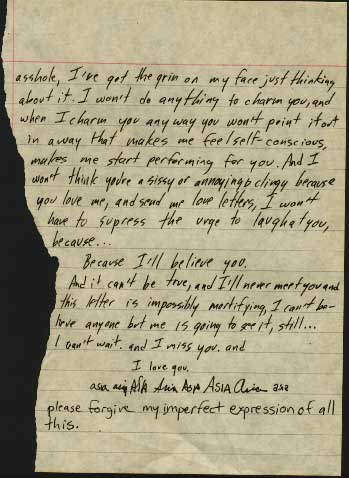 asshole, I've got the grin on my face just thinking
about it. I won't do anything to charm you, and
when I charm you any way you won't point it out
in a way that makes me feel self-conscious,
makes me start performing for you. And I
won't think you're a sissy or annoying & clingy because
you love me, and send me love letters, I won't
have to supress the urge to laugh at you,
because...
Because I'll believe you.
And it can't be true, and I'll never meet you and
this letter is impossibly mortifying, I can't be-
lieve anyone but me is going to see it, still...
I can't wait. and I miss you. and
I love you.
asia asia ASIA Asia ASIA ASIA Asia asia
please forgive my imperfect expression of all
this.